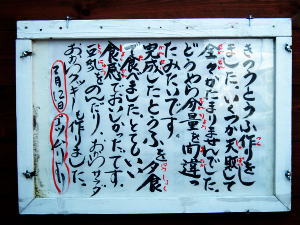 きのうとうふ作りをし
ました。いくつか失敗して
全々かたまりませんでした。
どうやら分量を間違っ
たみたいです。
完成したとうふを夕食
で食べました。とてもいい
食感でおいしかったです。
豆乳をのんだり、おからサラダ
おからクッキーも作りました。
2月12日